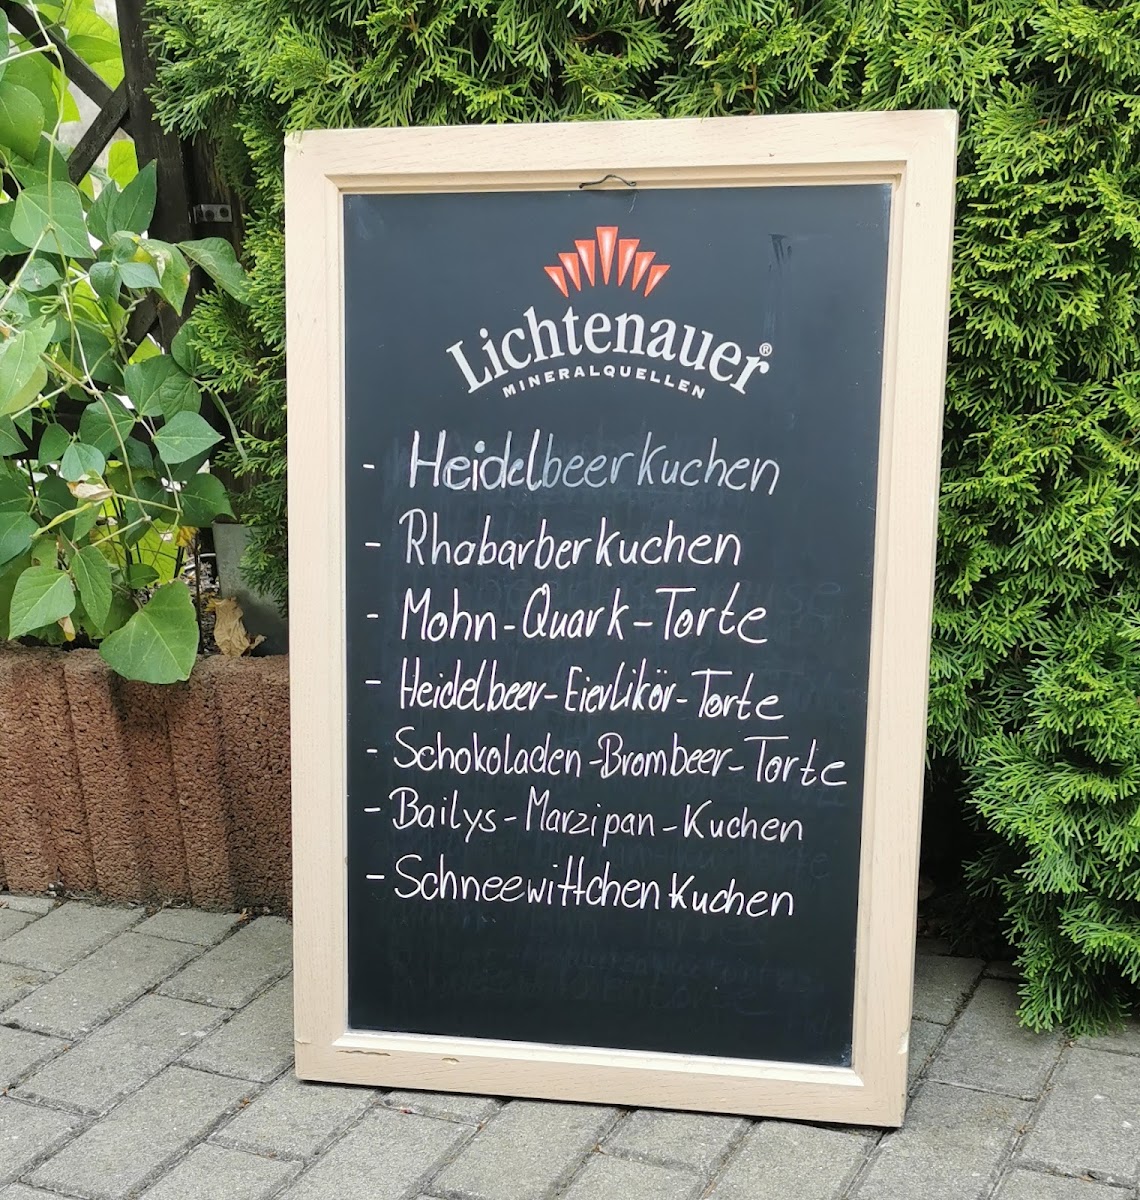 Lichtenauer®
MINERALQUELLEN
- Heidelbeerkuchen
- Rhabarberkuchen
- Mohn-Quark-Torte
- Heidelbeer-Eierlikör-Torte
- Schokoladen-Brombeer-Torte
- Bailys-Marzipan-Kuchen
- Schneewittchenkuchen